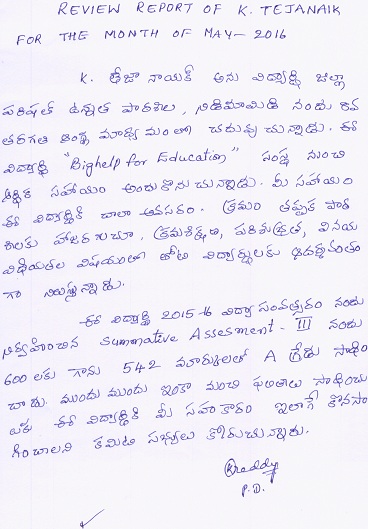 REVIEW REPORT OF K. TEJANAIK
FOR THE MONTH OF MAY- 2016
K. తేజా నాయక్ అను విద్యార్థి జిల్లా
పరిషత్ ఉన్నత పాఠశాల, నిడిమామిడి నందు
తరగతి ఆంగ్ల మాధ్యమంలో చదువుచున్నాడు. ఈ
విద్యార్థి "Bighelp for Education" సంస్థ నుంచి
ఆర్థిక సహాయం అందుకొనుచున్నాడు. మీ సహాయం
ఈ విద్యార్థికి చాలా అవసరం. క్రమం తప్పక పాఠ
శాలకు హాజరగుచూ, క్రమశిక్షణ, పరిశుభ్రత, వినయ
విధేయతల విషయంలో తోటి విద్యార్థులకు ఆదర్శవంతం
గా నిలుస్తున్నాడు.
ఈ విద్యార్థి 2015-16 విద్యా సంవత్సరం నందు
నిర్వహించిన Summative Assesment - III నందు
600 లకు గాను 542 మార్కులతో A గ్రేడు సాధిం
చాడు. ముందు ముందు ఇంకా మంచి ఫలితాలు సాధించు
టకు ఈ విద్యార్థికి మీ సహకారం ఇలాగే కొనసా
గించాలని కమిటి సభ్యులు కోరుచున్నారు.
Reddy
P.D.